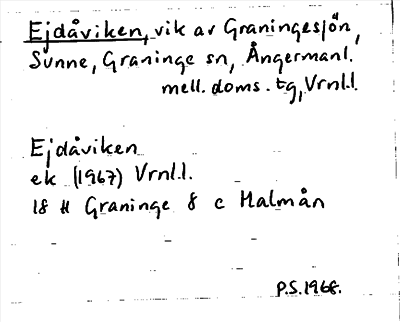 Ejdåviken, vik av Graningesjön,
Sunne, Graninge sn, Ångermanl.
mell. doms. tg, Vrnl.l.
Ejdåviken
ek (1967) Vrnl.l.
18 H Graninge 8 c Malmån
P.S. 1968.